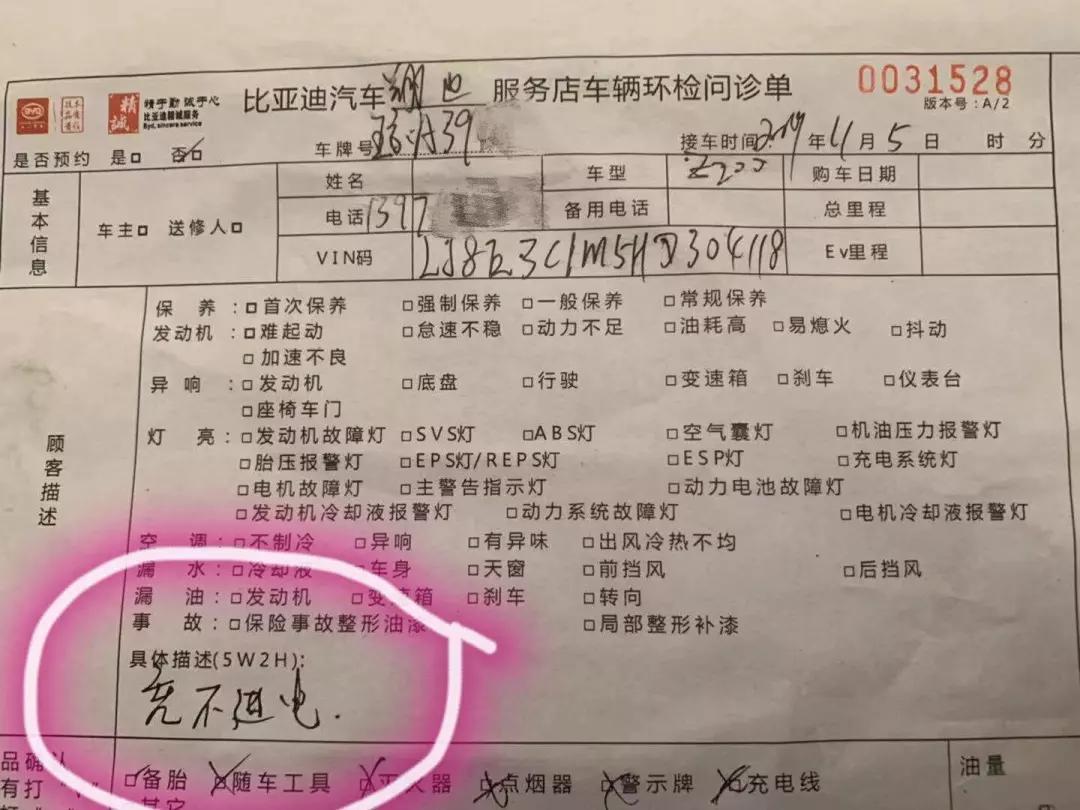 0031528
版本号：A/2
BYD 精诚 精于勤 诚于心
比亚迪精诚服务
Byd, sincere service
比亚迪汽车 服务店车辆环检问诊单
是否预约 是□ 否□ 车牌号 A39 接车时间 年 4 月 5 日 时 分
基本信息 车主□ 送修人□
姓名 车型 购车日期
电话 1397 备用电话 总里程
VIN码 LJ8E3C1M5HD304118 Ev里程
顾客描述
保养：□首次保养 □强制保养 □一般保养 □常规保养
发动机：□难起动 □怠速不稳 □动力不足 □油耗高 □易熄火 □抖动
□加速不良
异响：□发动机 □底盘 □行驶 □变速箱 □刹车 □仪表台
□座椅车门
灯亮：□发动机故障灯 □SVS灯 □ABS灯 □空气囊灯 □机油压力报警灯
□胎压报警灯 □EPS灯/REPS灯 □ESP灯 □充电系统灯
□电机故障灯 □主警告指示灯 □动力电池故障灯
□发动机冷却液报警灯 □动力系统故障灯 □电机冷却液报警灯
空调：□不制冷 □异响 □有异味 □出风冷热不均
漏水：□冷却液 □车身 □天窗 □前挡风 □后挡风
漏油：□发动机 □变速箱 □刹车 □转向
事故：□保险事故整形油漆 □局部整形补漆
具体描述(5W2H)：
充不进电.
品确认 □备胎 □随车工具 □灭火器 □点烟器 □警示牌 □充电线 油量
有打 "√" □其它